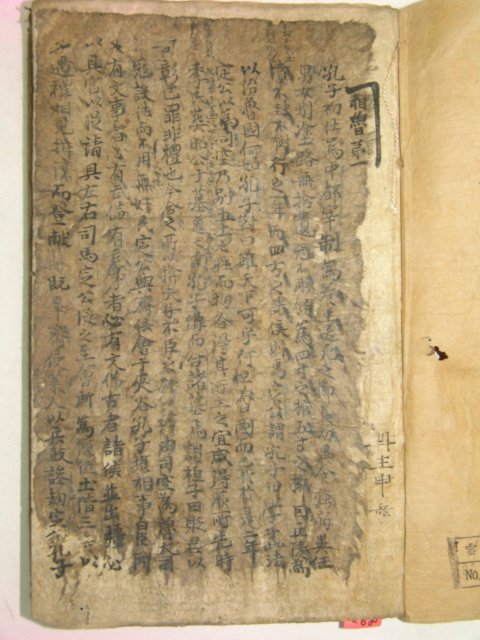 相魯第一
孔子初仕為中都宰制為養生送死之節長幼異食強弱異任
男女別塗路無拾遺器不雕偽為四寸之棺五寸之槨因丘陵為
墳不封不樹行之一年而四方之諸侯則焉定公謂孔子曰學子此法
以治魯國何如孔子對曰雖天下可乎何但魯國而已哉於是二年
定公以為司空乃別五土之性而物各得其所生之宜咸得厥所先時
季氏葬昭公于墓道之南孔子溝而合諸墓焉謂桓子曰貶君以
彰己罪非禮也今合之所以揜夫子不臣由司空為魯大司
寇設法而不用無奸民定公與齊侯會于夾谷孔子攝相事曰臣聞
有文事者必有武備有武事者必有文備古者諸侯並出疆必
具官以從請具左右司馬定公從之至會所為壇位土階三等以
遇禮相見揖讓而登獻 既畢齊使萊人以兵鼓譟劫定公孔子
主申
NO.